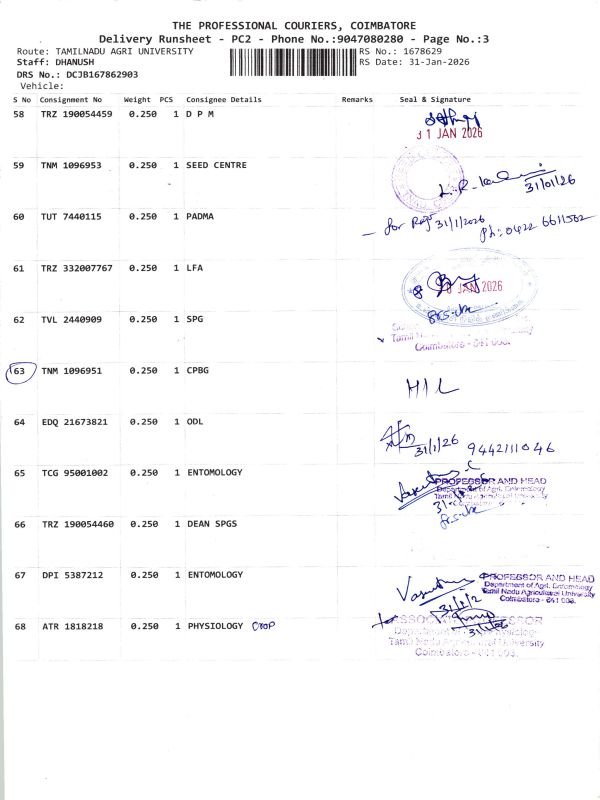 THE PROFESSIONAL COURIERS, COIMBATORE
Delivery Runsheet - PC2 - Phone No.:9047080280 - Page No.:3
Route: TAMILNADU AGRI UNIVERSITY RS No.: 1678629
Staff: DHANUSH RS Date: 31-Jan-2026
DRS No.: DCJB167862903
Vehicle:
S No Consignment No Weight PCS Consignee Details Remarks Seal & Signature
58 TRZ 190054459 0.250 1 D P M
31 JAN 2026
59 TNM 1096953 0.250 1 SEED CENTRE
31/01/26
60 TUT 7440115 0.250 1 PADMA
for 31/1/2026
Ph: 0422 6611502
61 TRZ 332007767 0.250 1 LFA
JAN 2026
62 TVL 2440909 0.250 1 SPG
Tamil
Coimbatore - 641 003.
63 TNM 1096951 0.250 1 CPBG
HIL
64 EDQ 21673821 0.250 1 ODL
31/1/26 9442111046
65 TCG 95001002 0.250 1 ENTOMOLOGY
PROFESSOR AND HEAD
Department of Agrl. Entomology
Tamil Nadu Agricultural University
66 TRZ 190054460 0.250 1 DEAN SPGS
67 DPI 5387212 0.250 1 ENTOMOLOGY
PROFESSOR AND HEAD
Department of Agrl. Entomology
Tamil Nadu Agricultural University
Coimbatore - 641 003.
68 ATR 1818218 0.250 1 PHYSIOLOGY crop
ASSOCIATE PROFESSOR
Tamil Nadu Agricultural University
Coimbatore - 641 003.